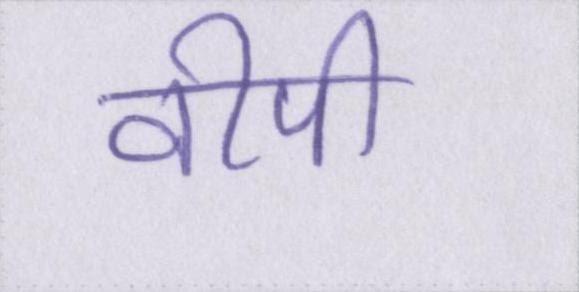 वीपी